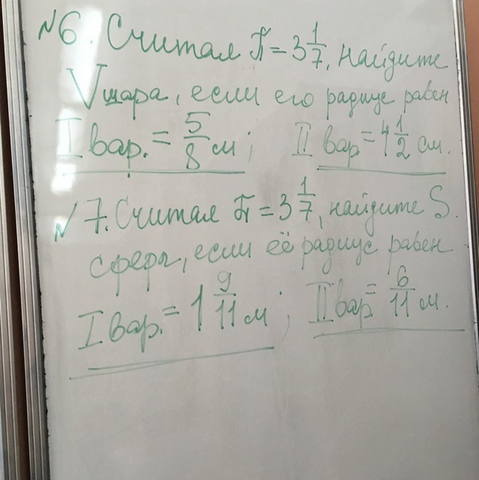 №6. Считая π = 3 1/7, найдите
Vшара, если его радиус равен
I вар. = 5/8 м; II вар = 4 1/2 см.
№7. Считая π = 3 1/7, найдите S
сферы, если её радиус равен
I вар. = 1 9/11 м; II вар = 6/11 м.